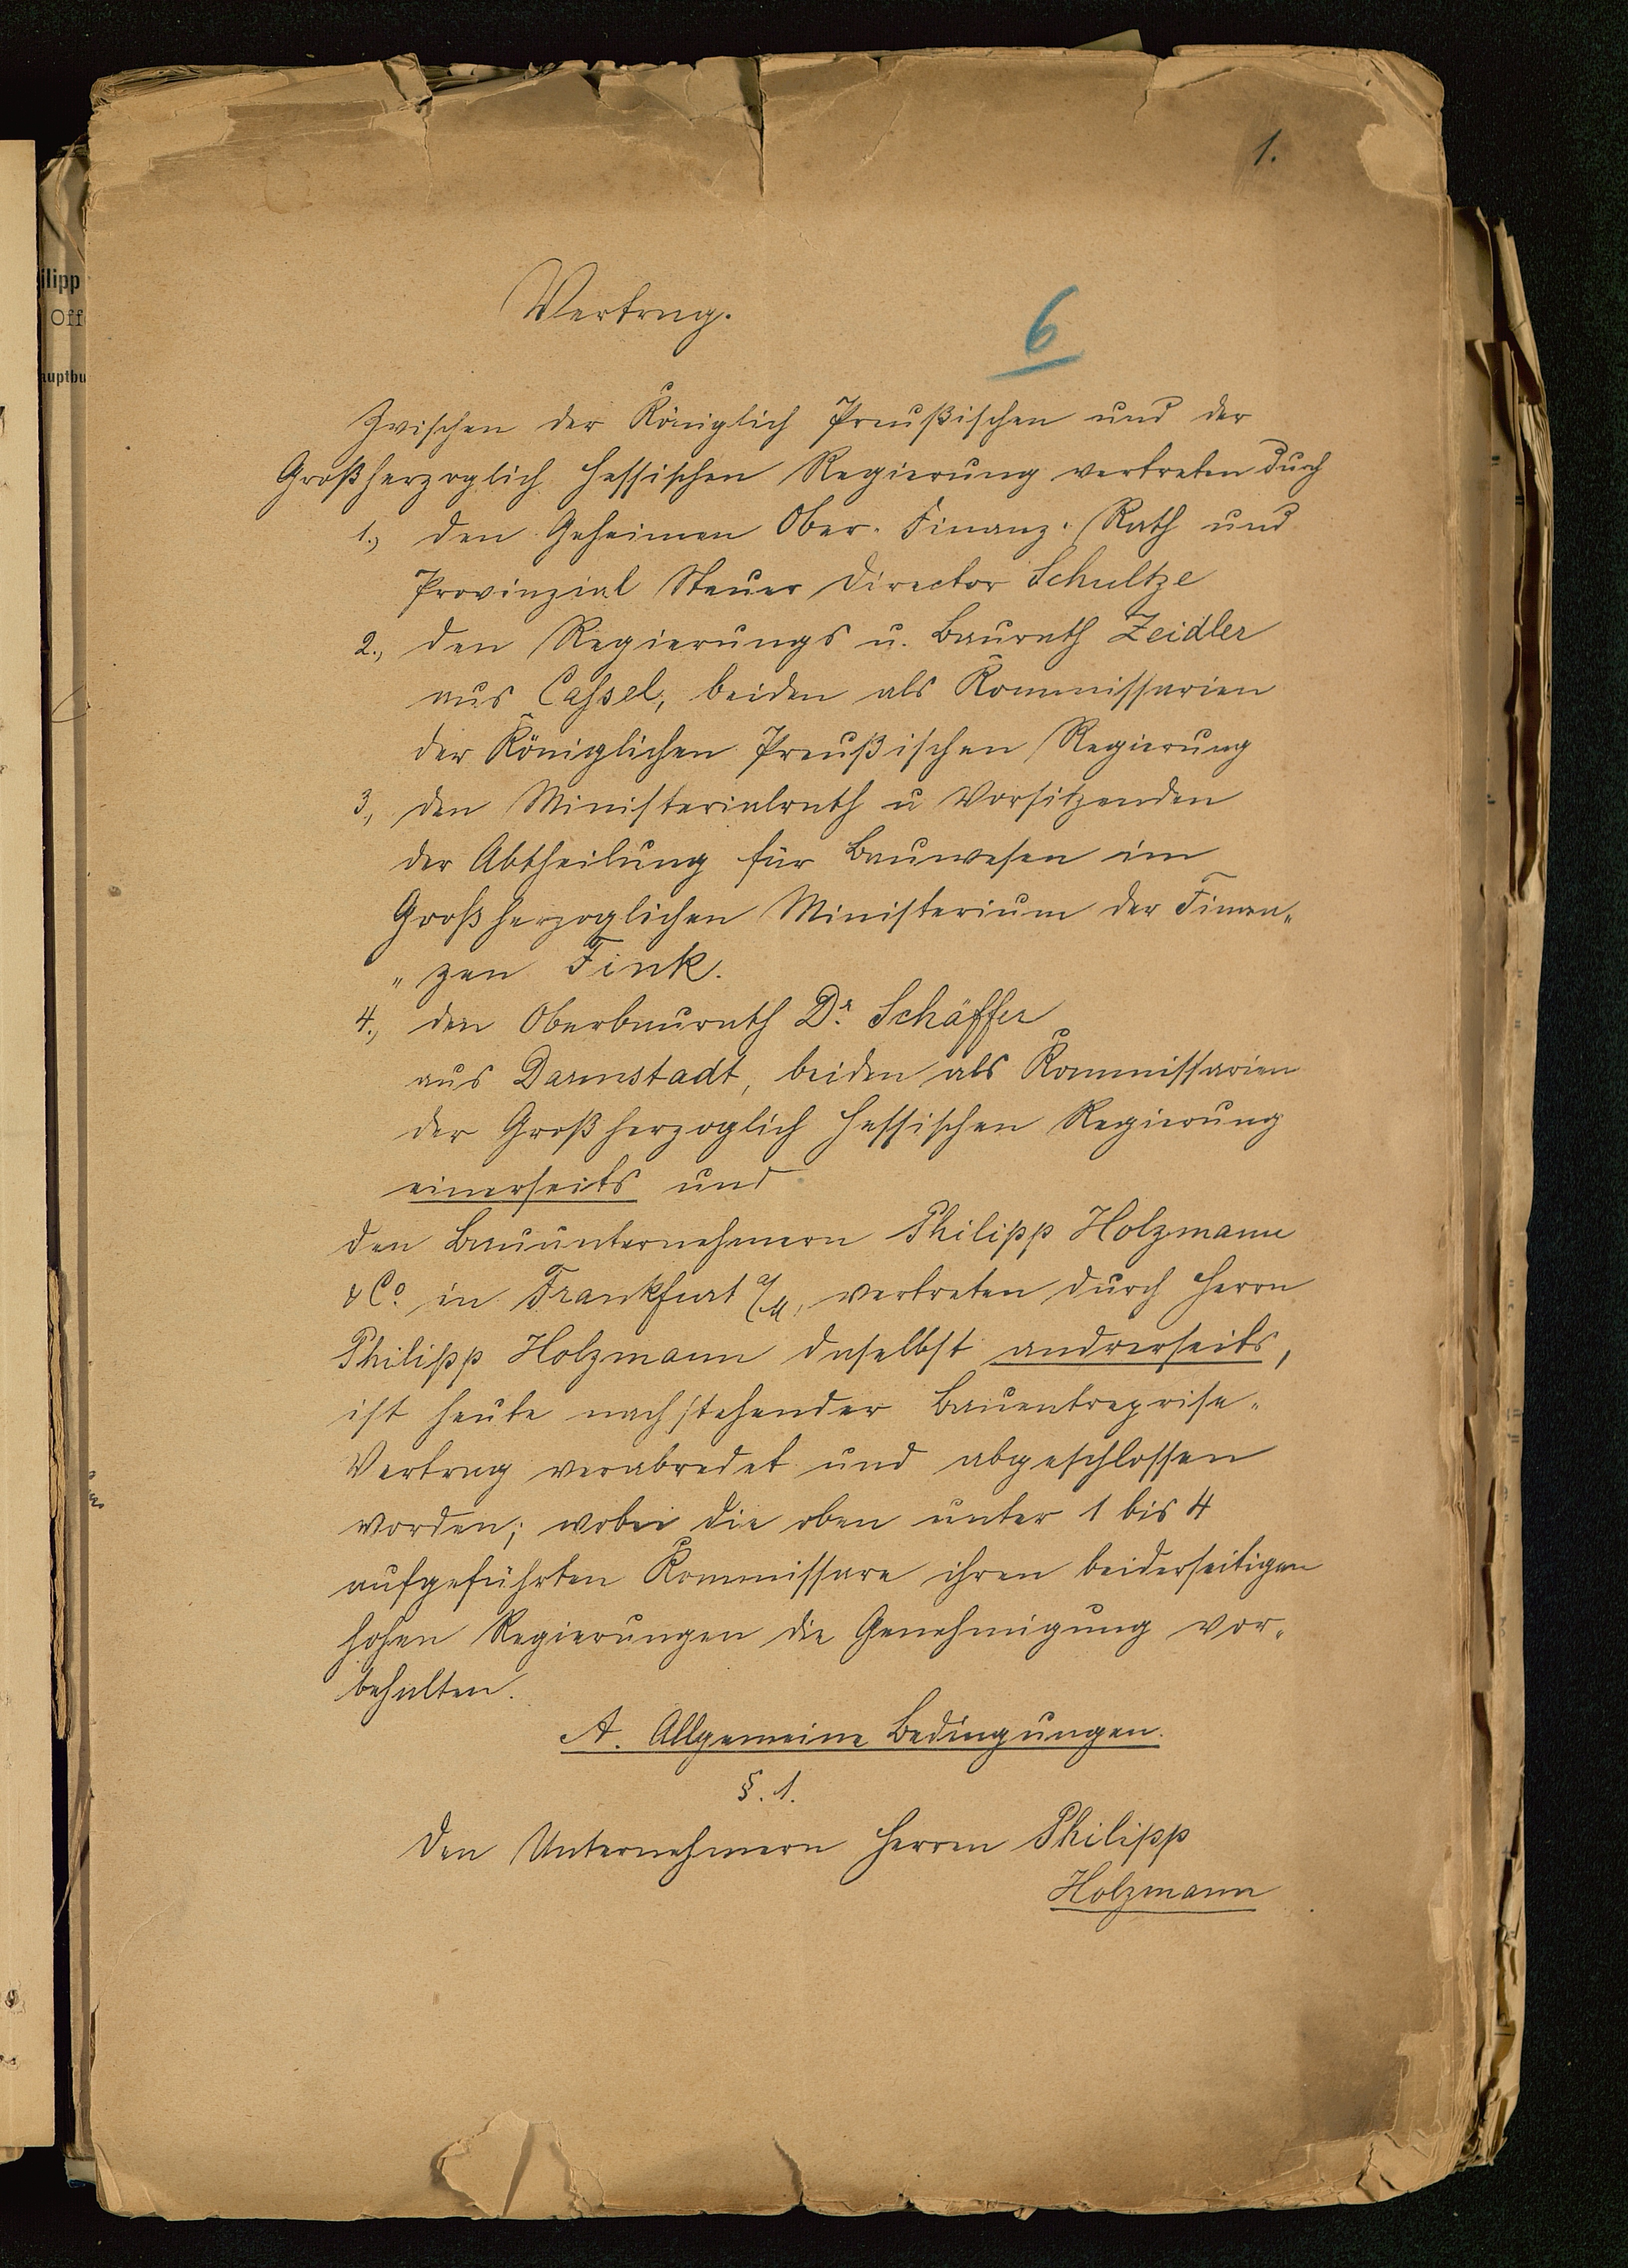 1.
Vertrag.
6
Zwischen der Königlich Preußischen und der
Großherzoglich Hessischen Regierung vertreten durch
1., den Geheimen Ober-Finanz-Rath und
Provinzial Steuer Director Schultze
2., den Regierungs u. Baurath Zeidler
aus Cassel, beiden als Kommissarien
der Königlichen Preußischen Regierung
3., den Ministerialrath u Vorsitzenden
der Abtheilung für Bauwesen im
Großherzoglichen Ministerium der Finan-
"zen Fink.
4., den Oberbaurath Dr. Schäffer
aus Darmstadt, beiden als Kommissarien
der Großherzoglich Hessischen Regierung
einerseits und
den Bauunternehmern Philipp Holzmann
& Co. in Frankfurt a/M, vertreten durch Herrn
Philipp Holzmann daselbst andrerseits,
ist heute nachstehender Bauentreprise-
Vertrag verabredet und abgeschlossen
worden; wobei die oben unter 1 bis 4
aufgeführten Kommissare ihren beiderseitigen
hohen Regierungen die Genehmigung vor-
behalten.
A. Allgemeine Bedingungen.
§. 1.
Den Unternehmern Herren Philipp
Holzmann
ilipp
Off
auptbu